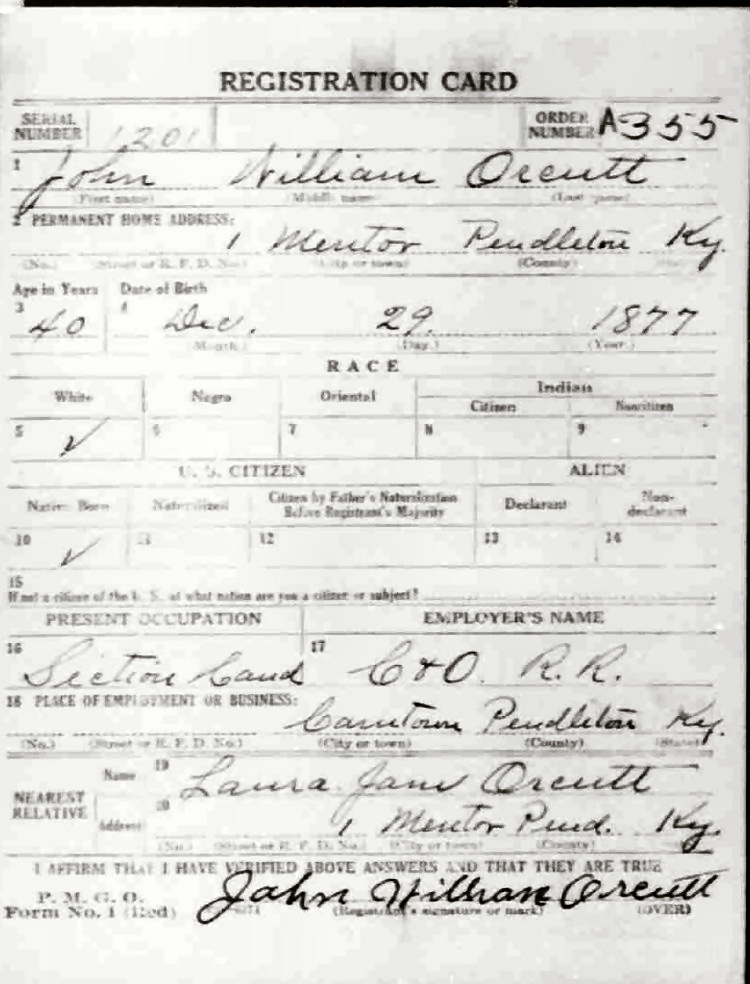 REGISTRATION CARD
SERIAL NUMBER 1201 ORDER NUMBER A355
1 John William Orcutt
(First name) (Middle name) (Last name)
2 PERMANENT HOME ADDRESS:
1 Mentor Pendleton Ky.
(No.) (Street or R. F. D. No.) (City or town) (County)
Age in Years Date of Birth
3 40 4 Dec. 29. 1877
(Month.) (Day.) (Year.)
RACE
White Negro Oriental Indian
Citizen Noncitizen
5 ✓ 6 7 8 9
U. S. CITIZEN ALIEN
Native Born Naturalized Citizen by Father's Naturalization Before Registrant's Majority Declarant Non-declarant
10 ✓ 11 12 13 14
15
If not a citizen of the U. S. of what nation are you a citizen or subject?
PRESENT OCCUPATION EMPLOYER'S NAME
16 Section 17 C & O. R. R.
18 PLACE OF EMPLOYMENT OR BUSINESS:
Pendleton Ky.
(No.) (Street or R. F. D. No.) (City or town) (County) (State)
NEAREST RELATIVE Name 19 Laura Jane Orcutt
Address 20 1 Mentor Pend. Ky.
(No.) (Street or R. F. D. No.) (City or town) (County)
I AFFIRM THAT I HAVE VERIFIED ABOVE ANSWERS AND THAT THEY ARE TRUE
P. M. G. O.
Form No. 1 (Red) John William Orcutt
(Registrant's signature or mark) (OVER)